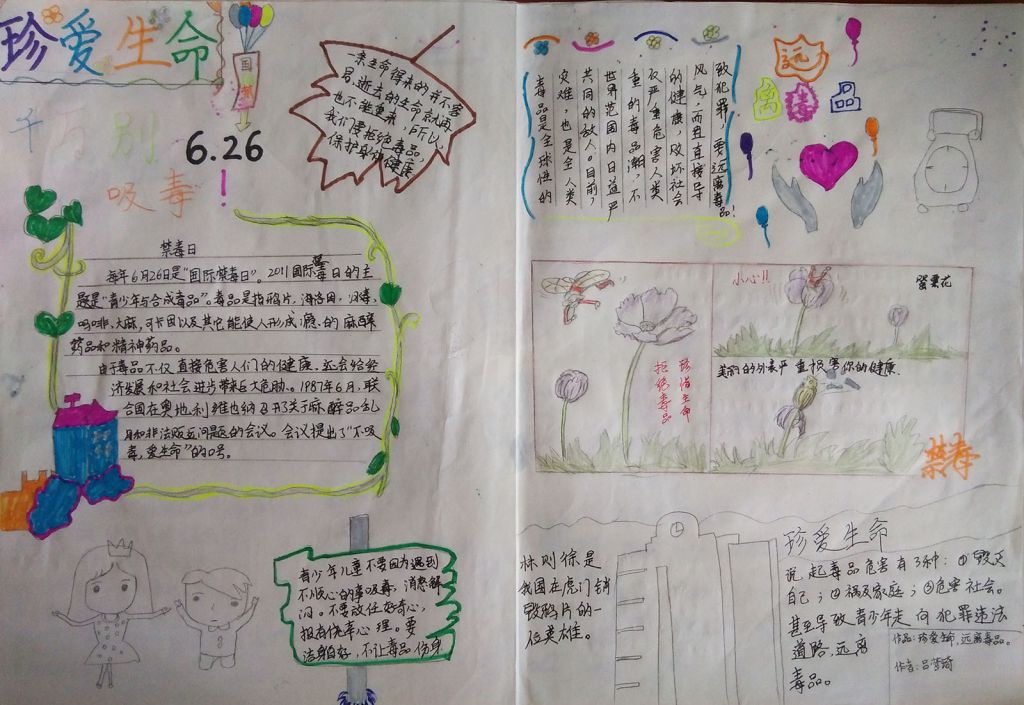 珍爱生命
千万别
吸毒!
国
6.26
亲生命得来的并不容
易,逝去的生命就再
也不能重来,所以
我们要拒绝毒品,
保护身体健康
禁毒日
每年6月26日是“国际禁毒日”。2011国际禁毒日的主
题是“青少年与合成毒品”。毒品是指鸦片、海洛因、冰毒、
吗啡、大麻、可卡因以及其它能使人形成瘾的麻醉
药品和精神药品。
由于毒品不仅直接危害人们的健康,还会给经
济发展和社会进步带来巨大危胁。1987年6月,联
合国在奥地利维也纳召开了关于麻醉品乱
用和非法贩运问题的会议。会议提出了“不吸
毒,爱生命”的口号。
青少年儿童不要因为遇到
不顺心的事吸毒,消愁解
闷。不要放任好奇心,
报有侥幸心理。要
洁身自好,不让毒品伤身
毒品是全球性的
灾难,也是全人类
共同的敌人。目前,
世界范围内日益严
重的毒品潮,不
仅严重危害人类
的健康,败坏社会
风气,而且直接导
致犯罪,要远离毒品。
远
离毒品
小心!!
罂粟花
珍惜生命
拒绝毒品
美丽的外表严重损害你的健康
禁毒
林则徐是
我国在虎门销
毁鸦片的一
位英雄。
珍爱生命
说起毒品危害有3种:①毁灭
自己;②祸及家庭;③危害社会。
甚至导致青少年走向犯罪违法
道路,远离
毒品。
作品:珍爱生命,远离毒品。
作者:吕梦琦